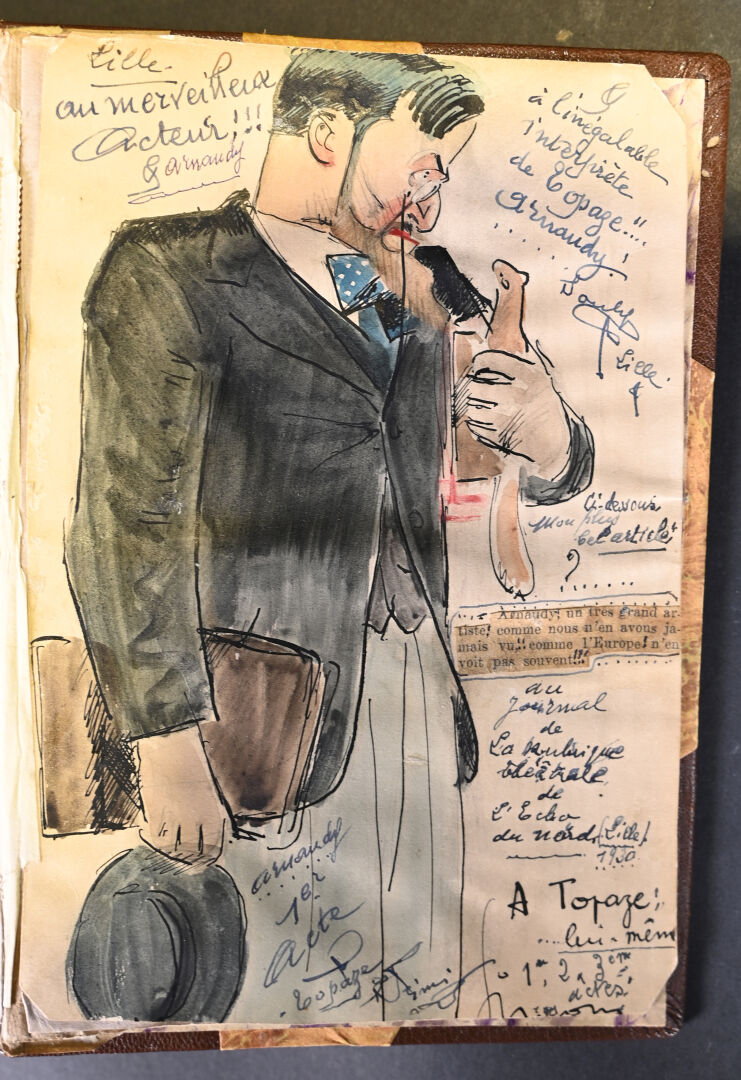 Lille.
au merveilleux
Acteur!!!
& Arnaudy
à l'inégalable
interprète
de Topaze!!...
Arnaudy!
Lille
Ci-dessous
Mon plus
bel article:
?
Arnaudy; un très grand ar-
tiste! comme nous n'en avons ja-
mais vu!! comme l'Europe! n'en
voit pas souvent!!!
du
Journal
de
La
théâtrale
de
L'Echo
du nord, (Lille)
1930
Arnaudy
1er
Acte
Topaze
A Topaze!
...lui-même
1er, 2, 3ème,
actes.